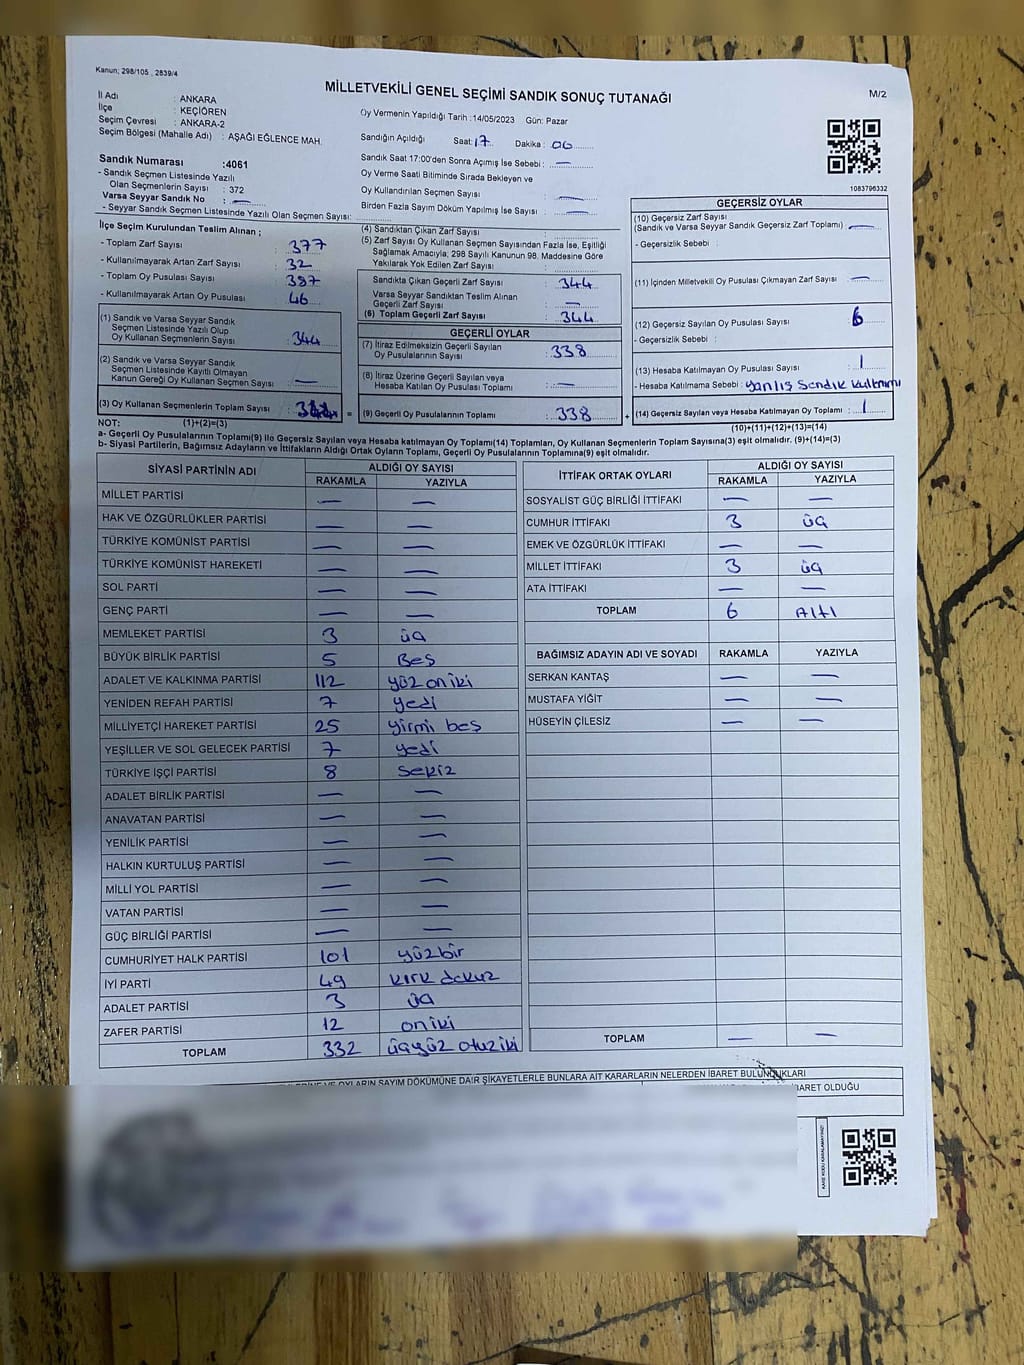 Kanun; 298/105 , 2839/4
MİLLETVEKİLİ GENEL SEÇİMİ SANDIK SONUÇ TUTANAĞI
M/2
İl Adı : ANKARA
İlçe : KEÇİÖREN
Seçim Çevresi : ANKARA-2
Seçim Bölgesi (Mahalle Adı) : AŞAĞI EĞLENCE MAH.
Oy Vermenin Yapıldığı Tarih :14/05/2023 Gün: Pazar
Sandığın Açıldığı Saat: 17 Dakika: 00
Sandık Saat 17:00'den Sonra Açımış İse Sebebi : —
Oy Verme Saati Bitiminde Sırada Bekleyen ve
Oy Kullandırılan Seçmen Sayısı : —
Birden Fazla Sayım Döküm Yapılmış İse Sayısı : —
Sandık Numarası :4061
- Sandık Seçmen Listesinde Yazılı
Olan Seçmenlerin Sayısı : 372
Varsa Seyyar Sandık No : —
- Seyyar Sandık Seçmen Listesinde Yazılı Olan Seçmen Sayısı:
1083796332
İlçe Seçim Kurulundan Teslim Alınan ;
- Toplam Zarf Sayısı : 377
- Kullanılmayarak Artan Zarf Sayısı : 32
- Toplam Oy Pusulası Sayısı : 397
- Kullanılmayarak Artan Oy Pusulası : 46
(1) Sandık ve Varsa Seyyar Sandık
Seçmen Listesinde Yazılı Olup
Oy Kullanan Seçmenlerin Sayısı : 344
(2) Sandık ve Varsa Seyyar Sandık
Seçmen Listesinde Kayıtlı Olmayan
Kanun Gereği Oy Kullanan Seçmen Sayısı : —
(3) Oy Kullanan Seçmenlerin Toplam Sayısı :
(4) Sandıktan Çıkan Zarf Sayısı :
(5) Zarf Sayısı Oy Kullanan Seçmen Sayısından Fazla İse, Eşitliği
Sağlamak Amacıyla; 298 Sayılı Kanunun 98. Maddesine Göre
Yakılarak Yok Edilen Zarf Sayısı :
Sandıkta Çıkan Geçerli Zarf Sayısı : 344
Varsa Seyyar Sandıktan Teslim Alınan
Geçerli Zarf Sayısı : —
(6) Toplam Geçerli Zarf Sayısı : 344
GEÇERLİ OYLAR
(7) İtiraz Edilmeksizin Geçerli Sayılan
Oy Pusulalarının Sayısı : 338
(8) İtiraz Üzerine Geçerli Sayılan veya
Hesaba Katılan Oy Pusulası Toplamı : —
= (9) Geçerli Oy Pusulalarının Toplamı : 338 +
GEÇERSİZ OYLAR
(10) Geçersiz Zarf Sayısı
(Sandık ve Varsa Seyyar Sandık Geçersiz Zarf Toplamı) : —
- Geçersizlik Sebebi :
(11) İçinden Milletvekili Oy Pusulası Çıkmayan Zarf Sayısı : —
(12) Geçersiz Sayılan Oy Pusulası Sayısı : 6
- Geçersizlik Sebebi :
(13) Hesaba Katılmayan Oy Pusulası Sayısı : 1
- Hesaba Katılmama Sebebi : Yanlış Sandık kullanımı
(14) Geçersiz Sayılan veya Hesaba Katılmayan Oy Toplamı : 1
NOT: (1)+(2)=(3)
(10)+(11)+(12)+(13)=(14)
a- Geçerli Oy Pusulalarının Toplamı(9) ile Geçersiz Sayılan veya Hesaba katılmayan Oy Toplamı(14) Toplamları, Oy Kullanan Seçmenlerin Toplam Sayısına(3) eşit olmalıdır. (9)+(14)=(3)
b- Siyasi Partilerin, Bağımsız Adayların ve İttifakların Aldığı Ortak Oyların Toplamı, Geçerli Oy Pusulalarının Toplamına(9) eşit olmalıdır.
SİYASİ PARTİNİN ADI ALDIĞI OY SAYISI
RAKAMLA YAZIYLA
MİLLET PARTİSİ — —
HAK VE ÖZGÜRLÜKLER PARTİSİ — —
TÜRKİYE KOMÜNİST PARTİSİ — —
TÜRKİYE KOMÜNİST HAREKETİ — —
SOL PARTİ — —
GENÇ PARTİ — —
MEMLEKET PARTİSİ 3 üç
BÜYÜK BİRLİK PARTİSİ 5 Beş
ADALET VE KALKINMA PARTİSİ 112 yüz oniki
YENİDEN REFAH PARTİSİ 7 yedi
MİLLİYETÇİ HAREKET PARTİSİ 25 yirmi beş
YEŞİLLER VE SOL GELECEK PARTİSİ 7 yedi
TÜRKİYE İŞÇİ PARTİSİ 8 sekiz
ADALET BİRLİK PARTİSİ — —
ANAVATAN PARTİSİ — —
YENİLİK PARTİSİ — —
HALKIN KURTULUŞ PARTİSİ — —
MİLLİ YOL PARTİSİ — —
VATAN PARTİSİ — —
GÜÇ BİRLİĞİ PARTİSİ — —
CUMHURİYET HALK PARTİSİ 101 yüzbir
İYİ PARTİ 49 kırk dokuz
ADALET PARTİSİ 3 üç
ZAFER PARTİSİ 12 oniki
TOPLAM 332 üçyüz otuziki
İTTİFAK ORTAK OYLARI ALDIĞI OY SAYISI
RAKAMLA YAZIYLA
SOSYALİST GÜÇ BİRLİĞİ İTTİFAKI — —
CUMHUR İTTİFAKI 3 üç
EMEK VE ÖZGÜRLÜK İTTİFAKI — —
MİLLET İTTİFAKI 3 üç
ATA İTTİFAKI — —
TOPLAM 6 Altı
BAĞIMSIZ ADAYIN ADI VE SOYADI RAKAMLA YAZIYLA
SERKAN KANTAŞ — —
MUSTAFA YİĞİT — —
HÜSEYİN ÇİLESİZ — —
TOPLAM — —
OYLARIN SAYIM DÖKÜMÜNE DAİR ŞİKAYETLERLE BUNLARA AİT KARARLARIN NELERDEN İBARET BULUNDUKLARI
İBARET OLDUĞU